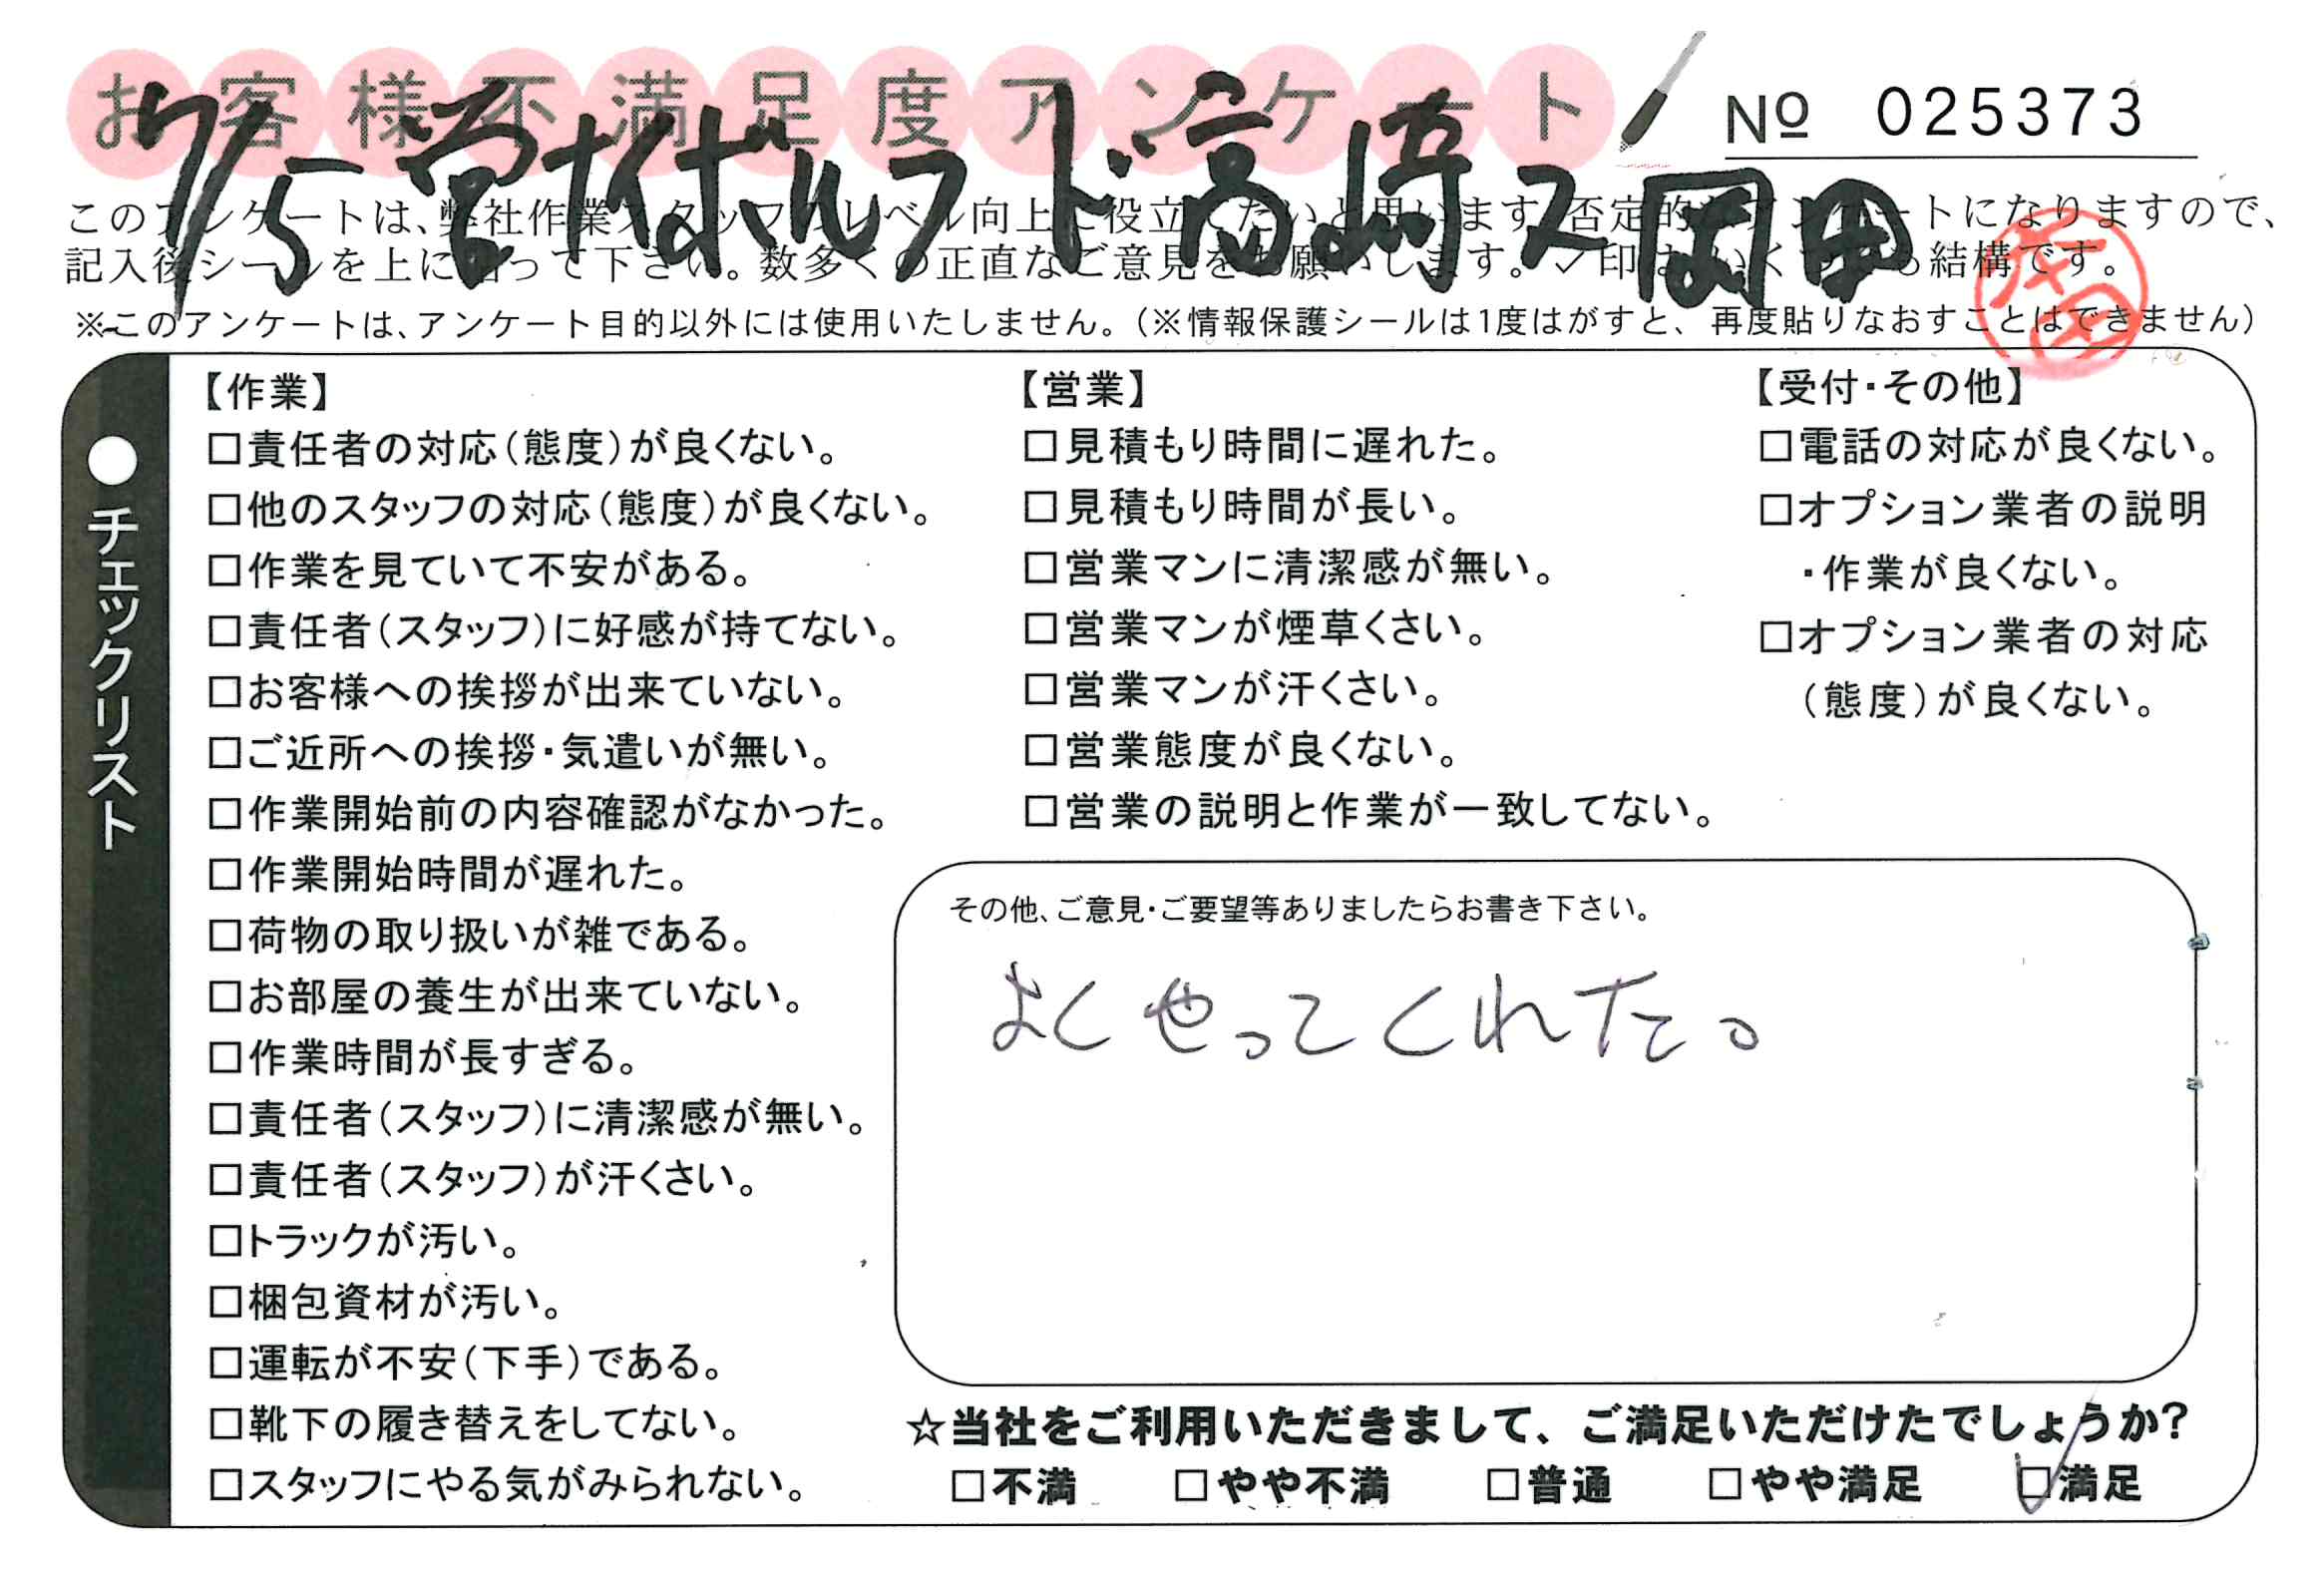 お客様不満足度アンケート
№ 025373
7/5 営ナイボルフド高崎ヌ岡田
このアンケートは、弊社作業スタッフのレベル向上に役立てたいと思います。否定的なアンケートになりますので、
記入後シールを上に貼って下さい。数多くの正直なご意見をお願いします。✓印はいくつでも結構です。
※このアンケートは、アンケート目的以外には使用いたしません。（※情報保護シールは1度はがすと、再度貼りなおすことはできません）
●チェックリスト
【作業】
□責任者の対応（態度）が良くない。
□他のスタッフの対応（態度）が良くない。
□作業を見ていて不安がある。
□責任者（スタッフ）に好感が持てない。
□お客様への挨拶が出来ていない。
□ご近所への挨拶・気遣いが無い。
□作業開始前の内容確認がなかった。
□作業開始時間が遅れた。
□荷物の取り扱いが雑である。
□お部屋の養生が出来ていない。
□作業時間が長すぎる。
□責任者（スタッフ）に清潔感が無い。
□責任者（スタッフ）が汗くさい。
□トラックが汚い。
□梱包資材が汚い。
□運転が不安（下手）である。
□靴下の履き替えをしてない。
□スタッフにやる気がみられない。
【営業】
□見積もり時間に遅れた。
□見積もり時間が長い。
□営業マンに清潔感が無い。
□営業マンが煙草くさい。
□営業マンが汗くさい。
□営業態度が良くない。
□営業の説明と作業が一致してない。
【受付・その他】
□電話の対応が良くない。
□オプション業者の説明
・作業が良くない。
□オプション業者の対応
（態度）が良くない。
その他、ご意見・ご要望等ありましたらお書き下さい。
よくやってくれた。
☆当社をご利用いただきまして、ご満足いただけたでしょうか?
□不満 □やや不満 □普通 □やや満足 ☑満足